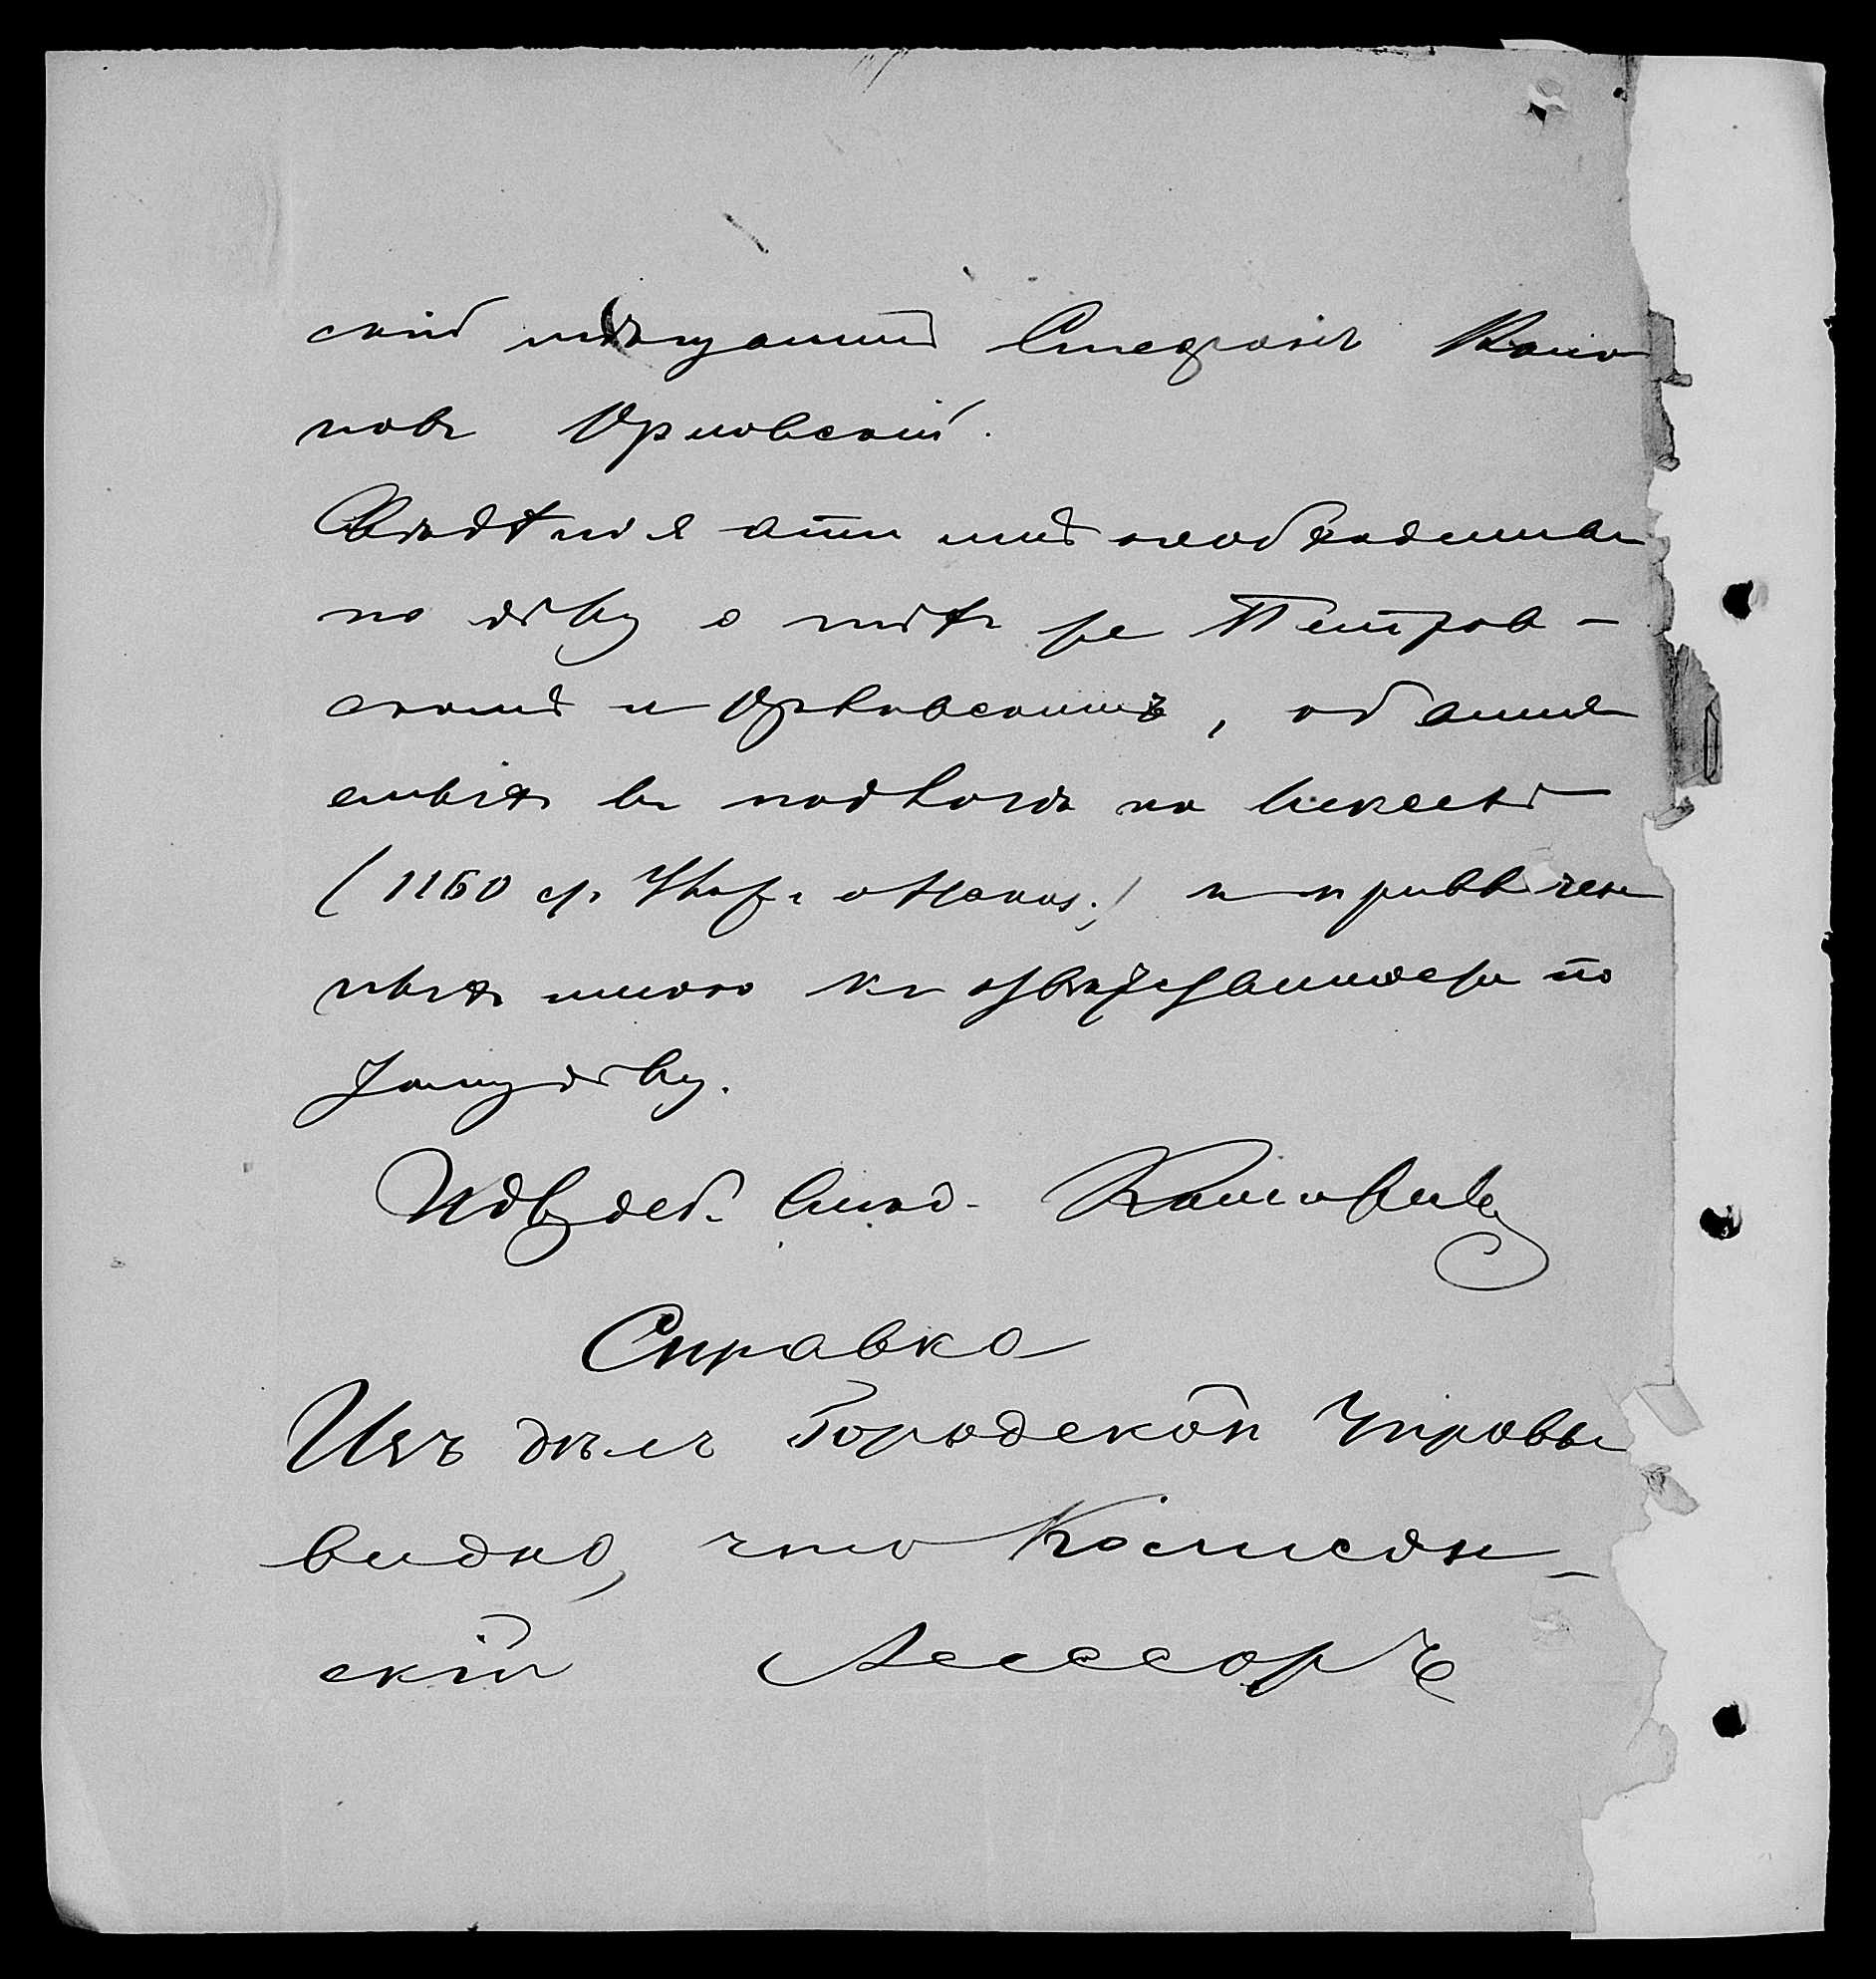 скій мѣщанинъ Стефанъ Кано
новъ Орловскій.
Свѣдѣнія эти мнѣ необходимы
по дѣлу о тѣхъ же Петров-
скомъ и Орловскомъ, обвиня
емыхъ въ подлогѣ на векселѣ
(1160 ст. Улож. о Наказ.) и привлечен
ныхъ мною къ отвѣтственности по
этому дѣлу.
Суд. Слѣд.
Справка
Изъ дѣлъ Городской Управы
видно, что Коллежс-
скій Ассесоръ